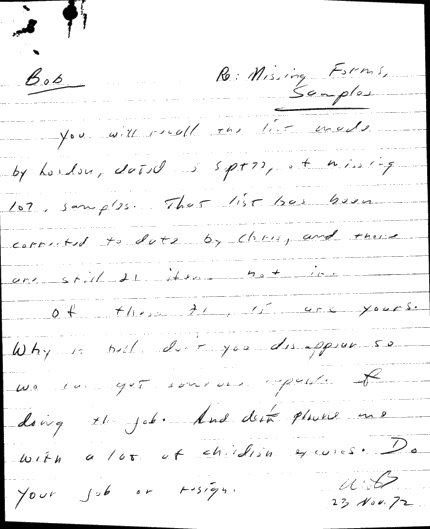 Bob Re: Missing Forms,
Samples
You will recall the list made
by London, dated 5 Sept 72, of missing
107, samples. That list has been
corrected to date by Chris, and there
are still 21 items not in.
Of these 21, 15 are yours.
Why in hell don't you disappear so
we can get someone capable of
doing the job. And don't phone me
with a lot of childish excuses. Do
your job or resign.
23 Nov. 72